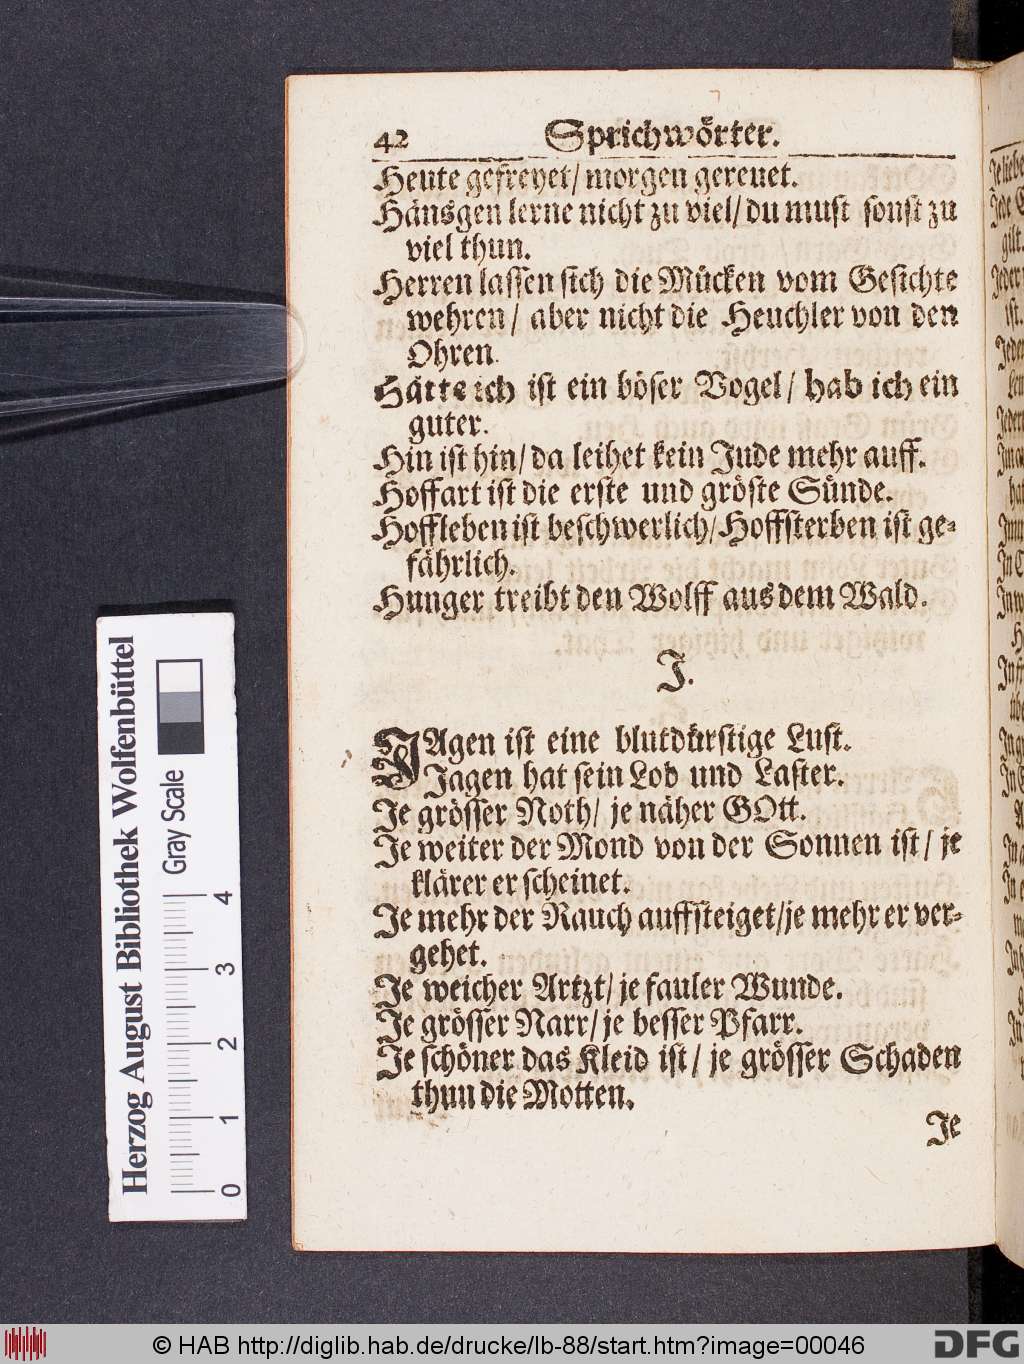 42 Sprichwörter.
Heute gefreyet/ morgen gereuet.
Hänsgen lerne nicht zu viel/ du must sonst zu
viel thun.
Herren lassen sich die Mücken vom Gesichte
wehren/ aber nicht die Heuchler von den
Ohren.
Hätte ich ist ein böser Vogel/ hab ich ein
guter.
Hin ist hin/ da leihet kein Jude mehr auff.
Hoffart ist die erste und gröste Sünde.
Hoffleben ist beschwerlich/ Hoffsterben ist ge-
fährlich.
Hunger treibt den Wolff aus dem Wald.
J.
JAgen ist eine blutdürstige Lust.
Jagen hat sein Lob und Laster.
Je grösser Noth/ je näher GOtt.
Je weiter der Mond von der Sonnen ist/ je
klärer er scheinet.
Je mehr der Rauch auffsteiget/ je mehr er ver-
gehet.
Je weicher Artzt/ je fauler Wunde.
Je grösser Narr/ je besser Pfarr.
Je schöner das Kleid ist/ je grösser Schaden
thun die Motten.
Je
Herzog August Bibliothek Wolfenbüttel
Gray Scale
0 1 2 3 4
© HAB http://diglib.hab.de/drucke/lb-88/start.htm?image=00046
DFG